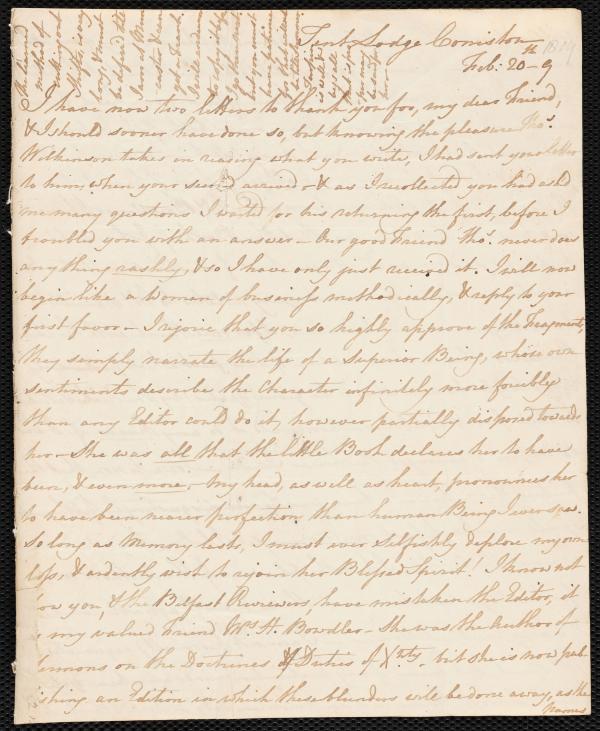 Tent Lodge Coniston
Feb: 20th - 9
I have now two letters to thank you for, my dear Friend,
& I should sooner have done so, but knowing the pleasure Thos.
Wilkinson takes in reading what you write, I had sent your letter
to him, when your second arrived - & as I recollected you had ask'd
me many questions I waited for his returning the first, before I
troubled you with an answer - Our good Friend Thos. never does
any thing rashly, & so I have only just received it. I will now
begin like a Woman of business methodically, & reply to your
first favor - I rejoice that you so highly approve of the Fragments,
they simply narrate the life of a Superior Being, whose own
sentiments describe the Character infinitely more forcibly
than any Editor could do it, however partially disposed towards
her - She was all that the little Book declares her to have
been, & even more, - my head, as well as heart, pronounces her
to have been nearer perfection than human Being I ever saw.
So long as Memory lasts, I must ever selfishly deplore my own
loss, & ardently wish to rejoin her Blessed Spirit! I know not
how you, & the Belfast Reviewers, have mistaken the Editor, it
is my valued Friend Mrs. H. Bowdler - She was the Author of
Sermons on the Doctrines & Duties of Xty. - but she is now pub
ishing an Edition in which these blunders will be done away, as the
names